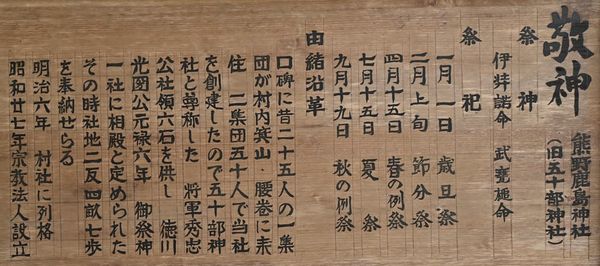 敬神
熊野鹿島神社
(旧五十部神社)
祭神
伊弉諾命 武甕槌命
祭祀
一月一日 歳旦祭
二月上旬 節分祭
四月十五日 春の例祭
七月十五日 夏祭
九月十九日 秋の例祭
由緒沿革
口碑に昔二十五人の一集
団が村内箕山・腰巻に来
住 二集団五十人で当社
を創建したので五十部神
社と尊称した 将軍秀忠
公社領六石を供し 徳川
光圀公元禄六年 御祭神
一社に相殿と定められた
その時社地二反四畝七歩
を奉納せらる
明治六年 村社に列格
昭和廿七年宗教法人設立